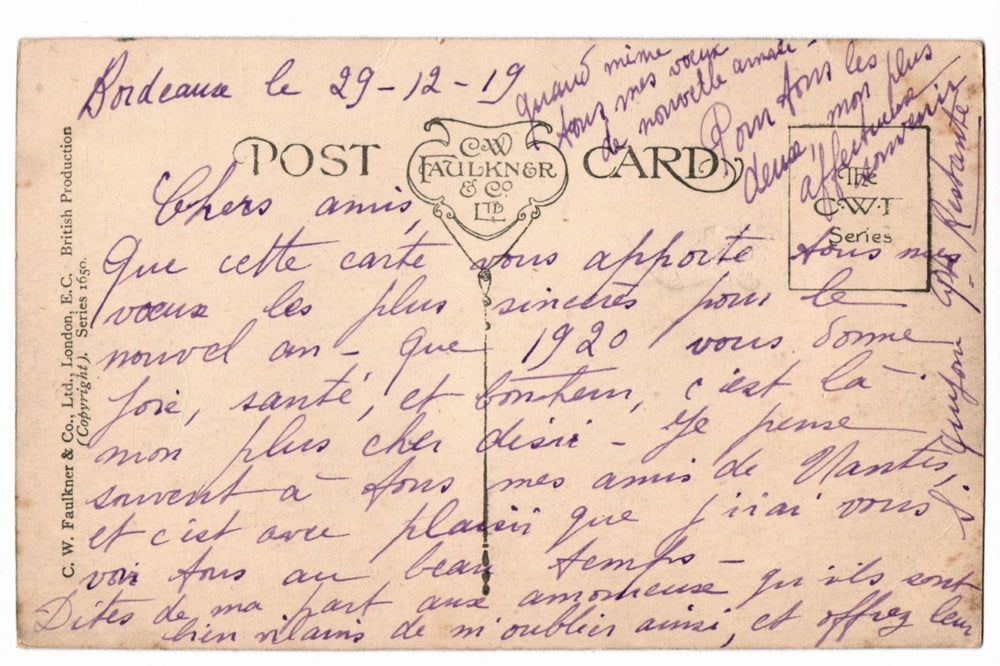 Bordeaux le 29-12-19
POST CARD
C.W. FAULKNER & Co. LTD
The C.W.F Series
Chers amis,
Que cette carte vous apporte tous mes
vœux les plus sincères pour le
nouvel an - que 1920 vous donne
joie, santé, et bonheur, c'est là
mon plus cher désir - Je pense
souvent à tous mes amis de Nantes,
et c'est avec plaisir que j'irai vous
voir tous au beau temps -
Dites de ma part aux amoureux qu'ils sont
bien vilains de m'oublier ainsi, et offrez leur
quand même
tous mes vœux
de nouvelle année -
Pour tous les
deux, mon plus
affectueux
souvenir
Restante
C. W. Faulkner & Co., Ltd., London, E.C. British Production
(Copyright). Series 1650.